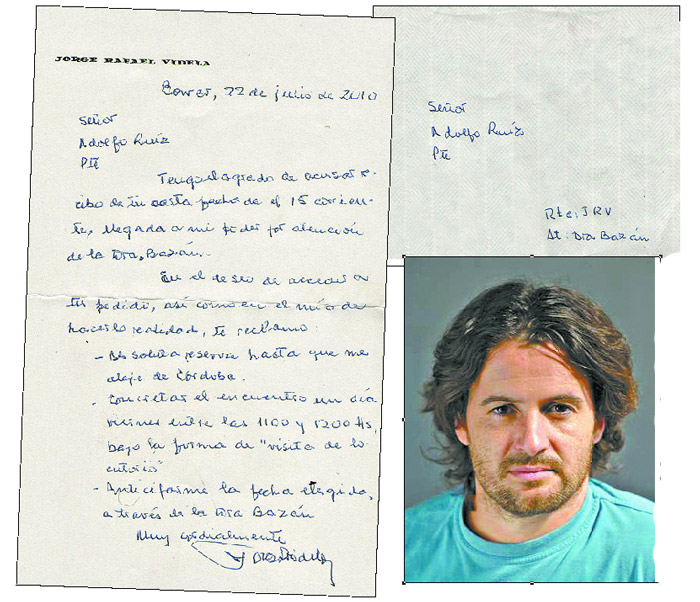 JORGE RAFAEL VIDELA
Bower, 22 de julio de 2010
Señor
Adolfo Ruiz
Pte
Tengo el agrado de acusar re-
cibo de tu carta fecha de el 15 corrien-
te, llegada a mi poder por atención
de la Dra. Bazán.
En el deseo de acceder a
tu pedido, así como en el mío de
hacerlo realidad, te reclamo:
- Absoluta reserva hasta que me
aleje de Córdoba.
- Concretar el encuentro un día
viernes entre las 1100 y 1200 Hs,
bajo la forma de "visita de lo
cutorio"
- Anticiparme la fecha elegida,
a través de la Dra Bazán
Muy cordialmente
Señor
Adolfo Ruiz
Pte
Rte: JRV
At: Dra Bazán